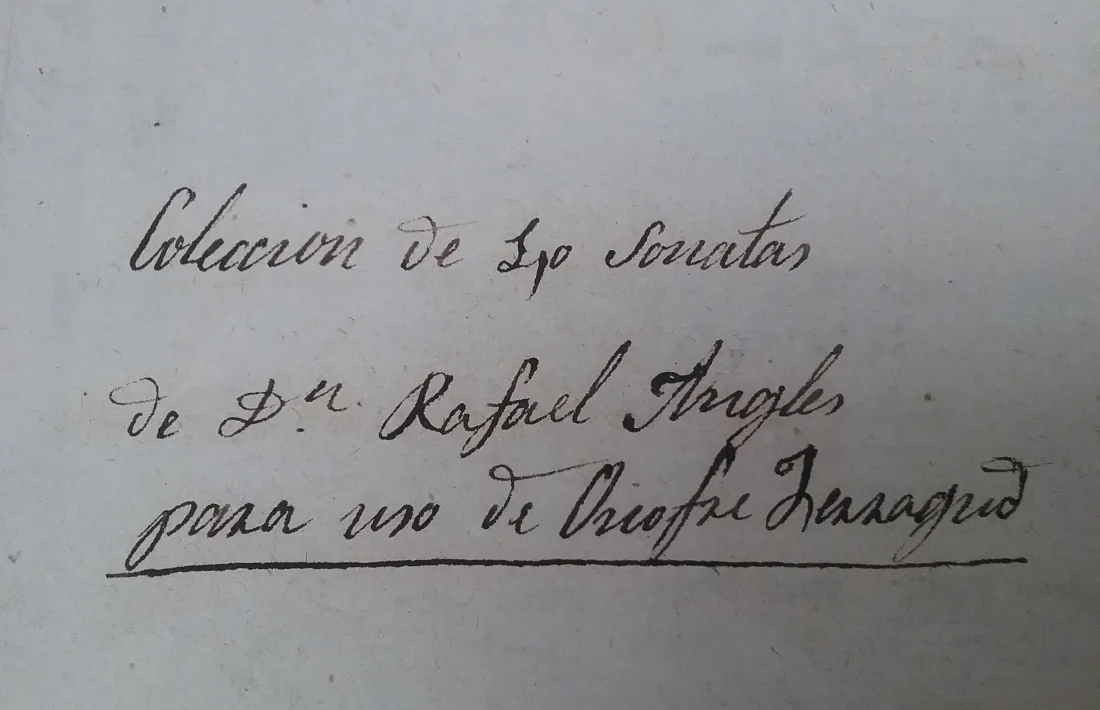 Coleccion de Sonatas
de D.ⁿ Rafael Angles
para uso de Onofre Ferragud